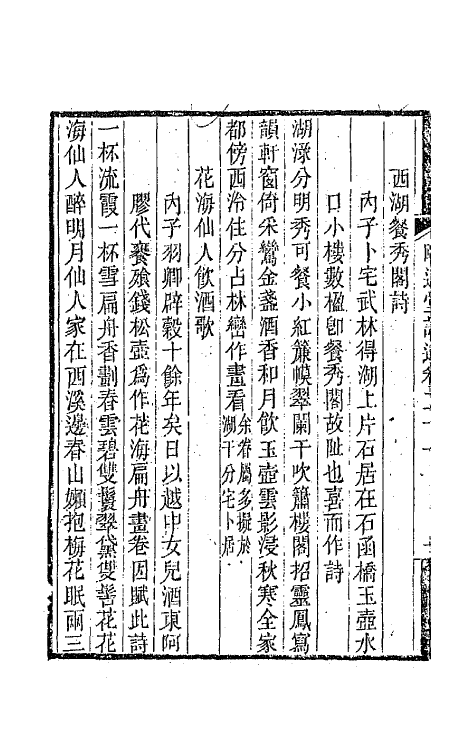 西湖餐秀閣詩
內子卜宅武林得湖上片石居在石函橋玉壺水
口小樓數楹卽餐秀閣故阯也喜而作詩
湖淥分明秀可餐小紅簾幙翠闌干吹簫樓閣招靈鳳寫
韻軒窗倚采鸞金盞酒香和月飮玉壺雲影浸秋寒全家
都傍西泠住分占林巒作畫看余眷屬多擬於湖干分宅卜居
花海仙人飮酒歌
內子羽卿辟穀十餘年矣日以越中女兒酒東阿
膠代饔飱錢松壺爲作花海扁舟畫卷因賦此詩
一杯流霞一杯雪扁舟香劃春雲碧雙鬟翠黛雙髻花花
海仙人醉明月仙人家在西溪邊春山嬾抱梅花眠兩三